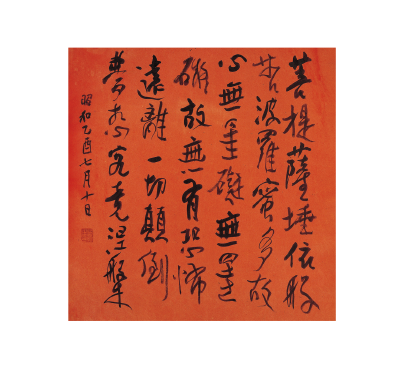 菩提薩埵依般
若波羅蜜多故
心無罣礙無罣
礙故無有恐怖
遠離一切顛倒
夢想究竟涅槃
昭和乙酉七月十日